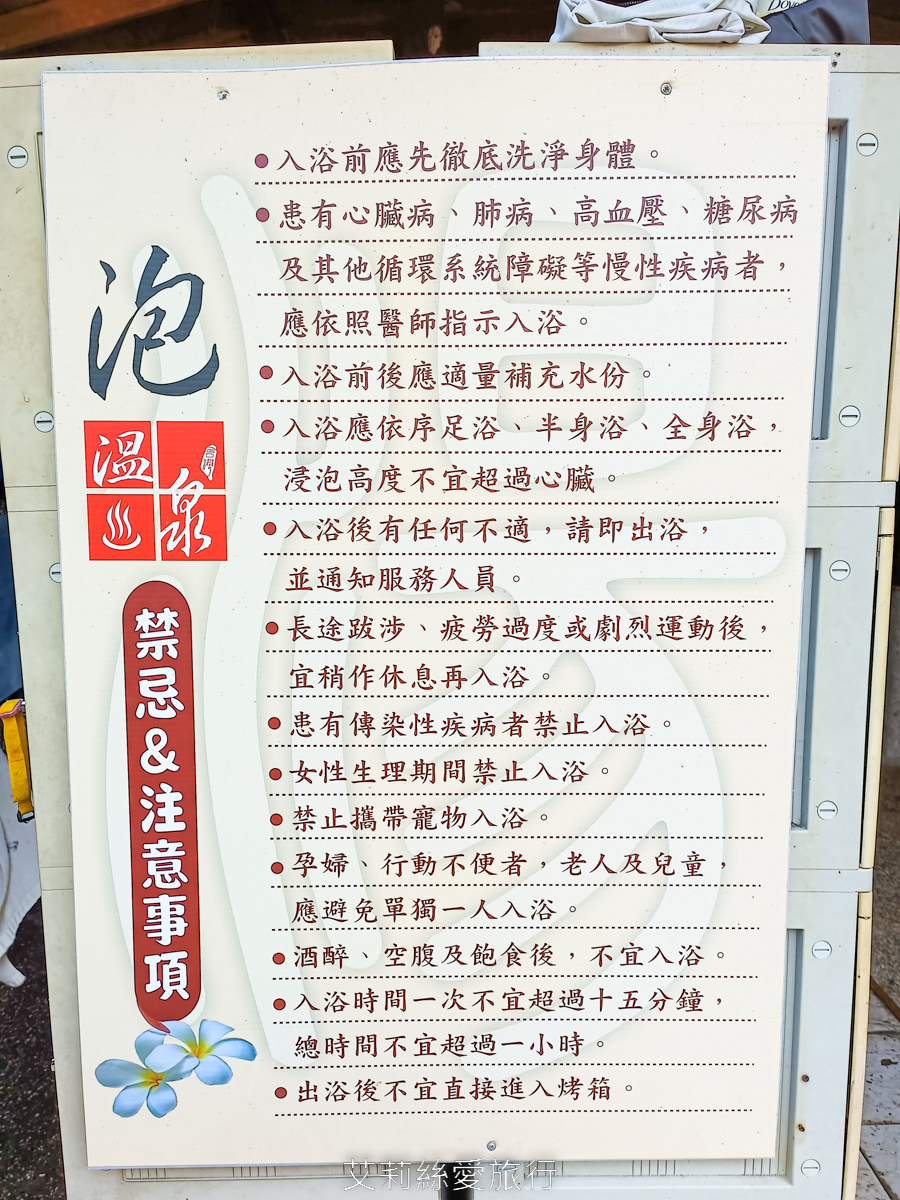 泡
溫泉
禁忌&注意事項
●入浴前應先徹底洗淨身體。
●患有心臟病、肺病、高血壓、糖尿病
及其他循環系統障礙等慢性疾病者，
應依照醫師指示入浴。
●入浴前後應適量補充水份。
●入浴應依序足浴、半身浴、全身浴，
浸泡高度不宜超過心臟。
●入浴後有任何不適，請即出浴，
並通知服務人員。
●長途跋涉、疲勞過度或劇烈運動後，
宜稍作休息再入浴。
●患有傳染性疾病者禁止入浴。
●女性生理期間禁止入浴。
●禁止攜帶寵物入浴。
●孕婦、行動不便者，老人及兒童，
應避免單獨一人入浴。
●酒醉、空腹及飽食後，不宜入浴。
●入浴時間一次不宜超過十五分鐘，
總時間不宜超過一小時。
●出浴後不宜直接進入烤箱。
艾莉絲愛旅行